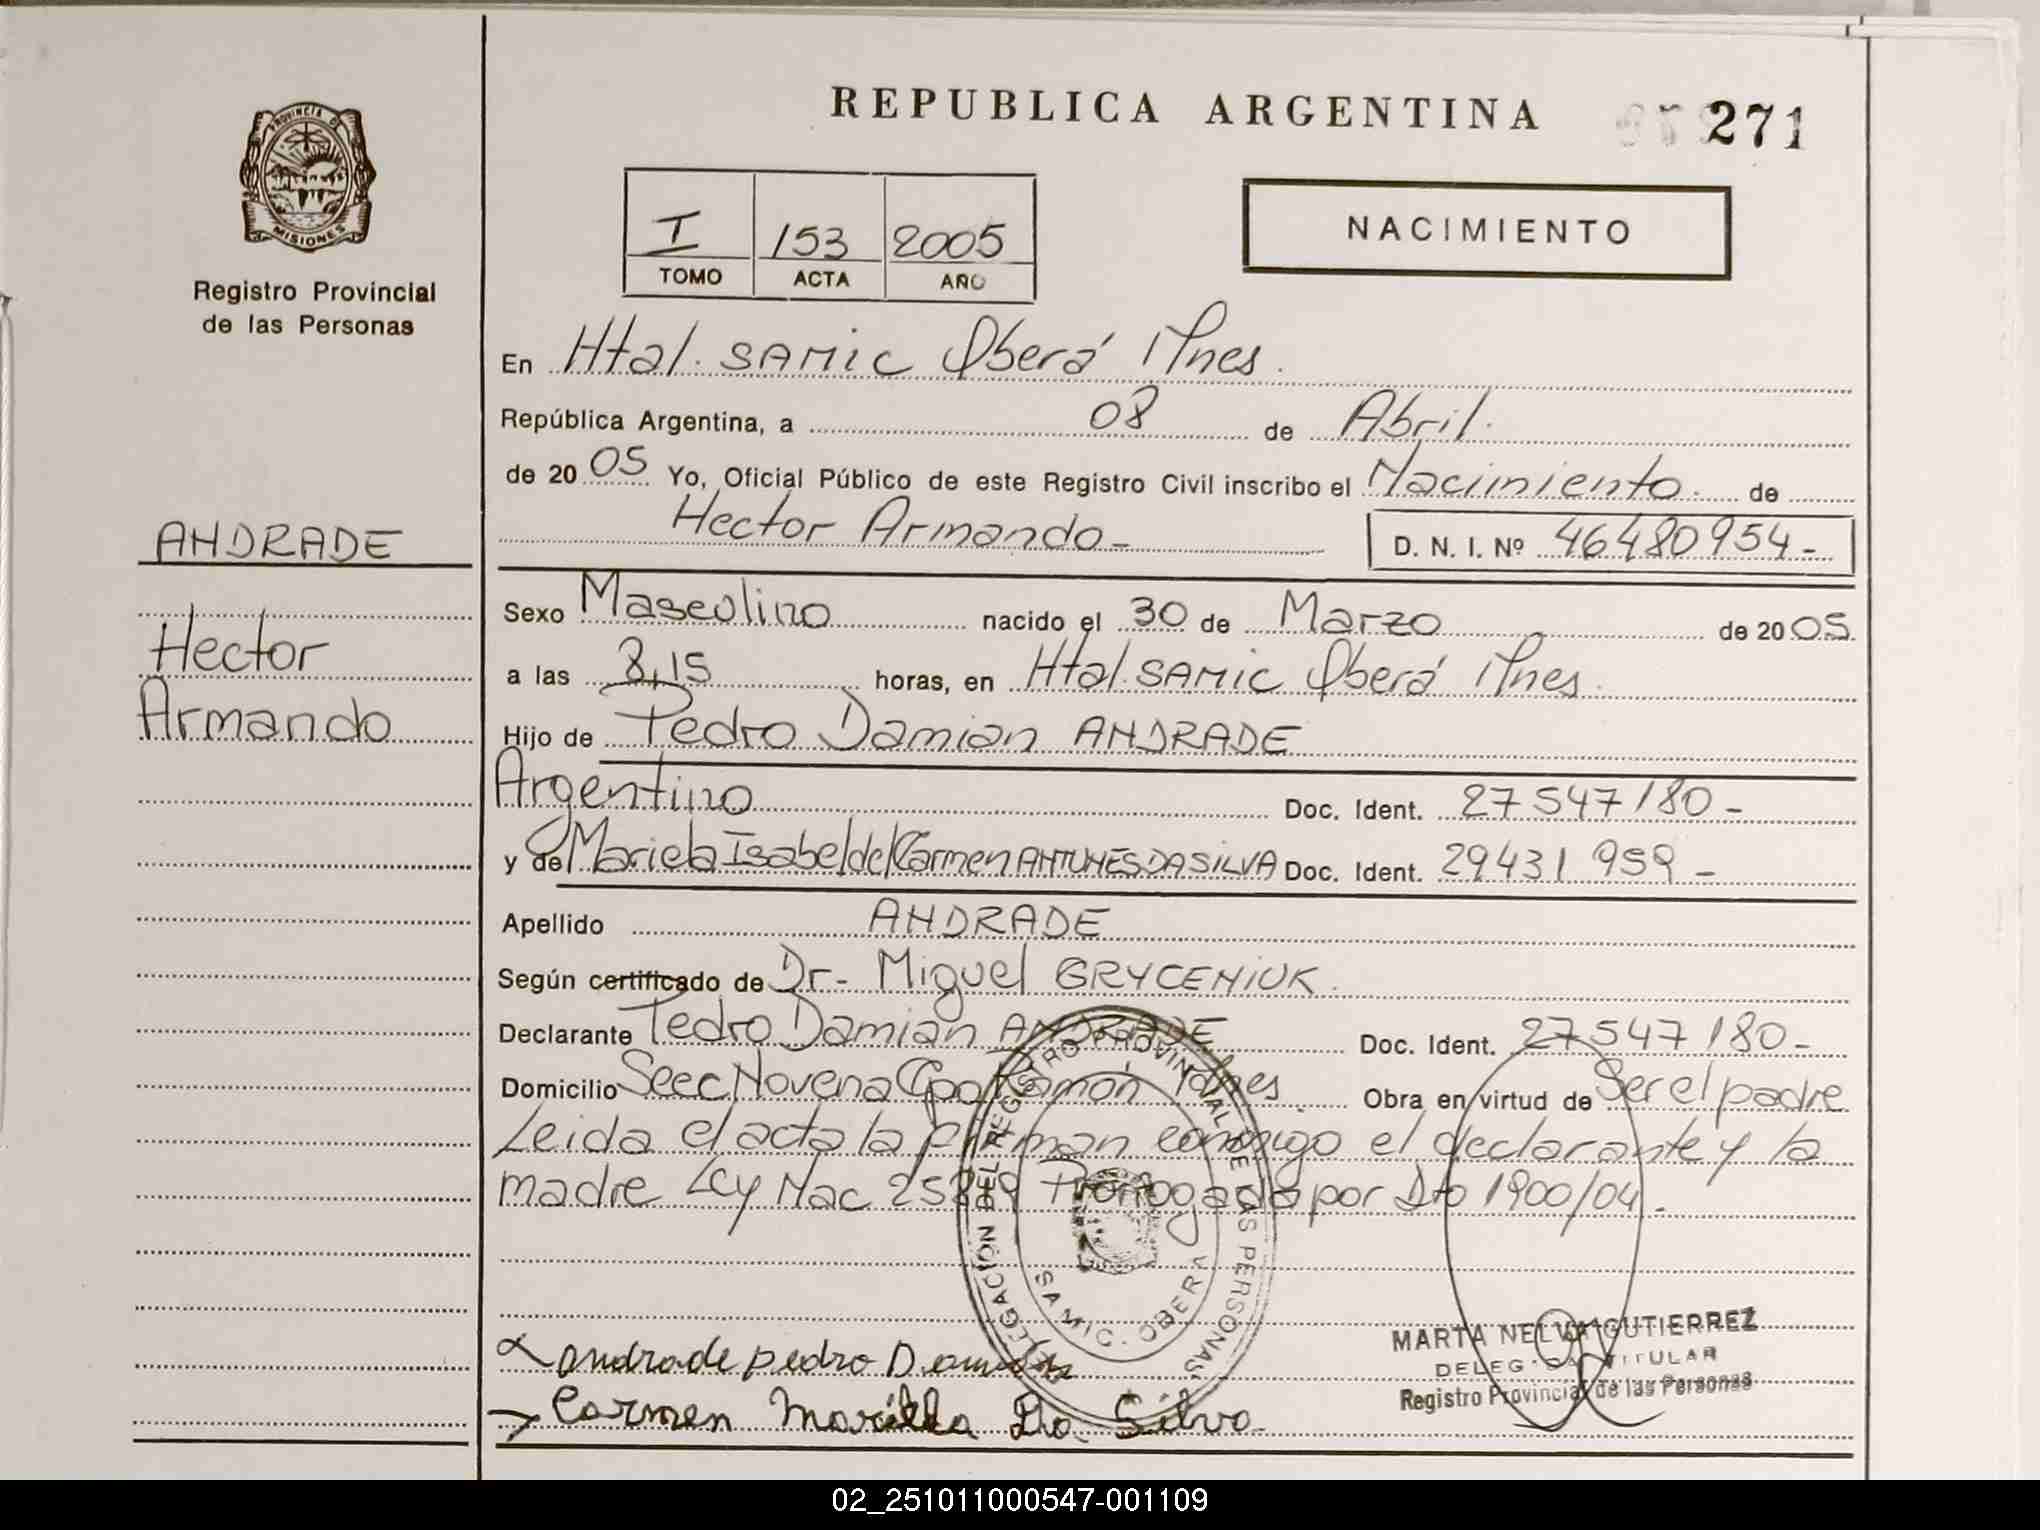 REPUBLICA ARGENTINA
271
PROVINCIA DE
MISIONES
Registro Provincial
de las Personas
I 153 2005
TOMO ACTA AÑO
NACIMIENTO
En Htal. SAMIC Oberá Mnes.
República Argentina, a 08 de Abril.
de 2005 Yo, Oficial Público de este Registro Civil inscribo el Nacimiento. de
Hector Armando-
D. N. I. Nº 46480954-
ANDRADE
Hector
Armando
Sexo Masculino nacido el 30 de Marzo de 2005.
a las 8,15 horas, en Htal. SAMIC Oberá Mnes.
Hijo de Pedro Damian ANDRADE
Argentino Doc. Ident. 27547180-
y de Mariela Isabel del Carmen ANTUNES DA SILVA Doc. Ident. 29431959-
Apellido ANDRADE
Según certificado de Dr- Miguel GRYCENIUK.
Declarante Pedro Damian ANDRADE Doc. Ident. 27547180-
Domicilio Secc Novena Cpo Ramón Mnes. Obra en virtud de Ser el padre
Leida el acta la firman conmigo el declarante y la
madre Ley Nac Prorrogada por Dto 1900/04.
DELEGACIÓN DEL REGISTRO PROVINCIAL DE LAS PERSONAS
SAMIC. OBERA
andrade pedro Damian
Carmen Mariela Da Silva
MARTA NELVA GUTIERREZ
DELEGADA TITULAR
Registro Provincial de las Personas
02_251011000547-001109